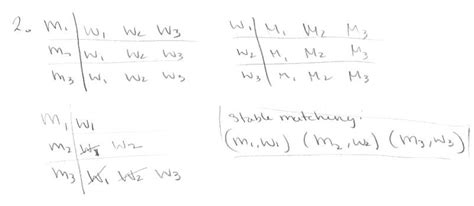 2. M₁ | W₁ W₂ W₃
M₂ | W₁ W₂ W₃
M₃ | W₁ W₂ W₃
W₁ | M₁ M₂ M₃
W₂ | M₁ M₂ M₃
W₃ | M₁ M₂ M₃
M₁ | W₁
M₂ | W₁ W₂
M₃ | W₁ W₂ W₃
stable matching:
(M₁, W₁) (M₂, W₂) (M₃, W₃)